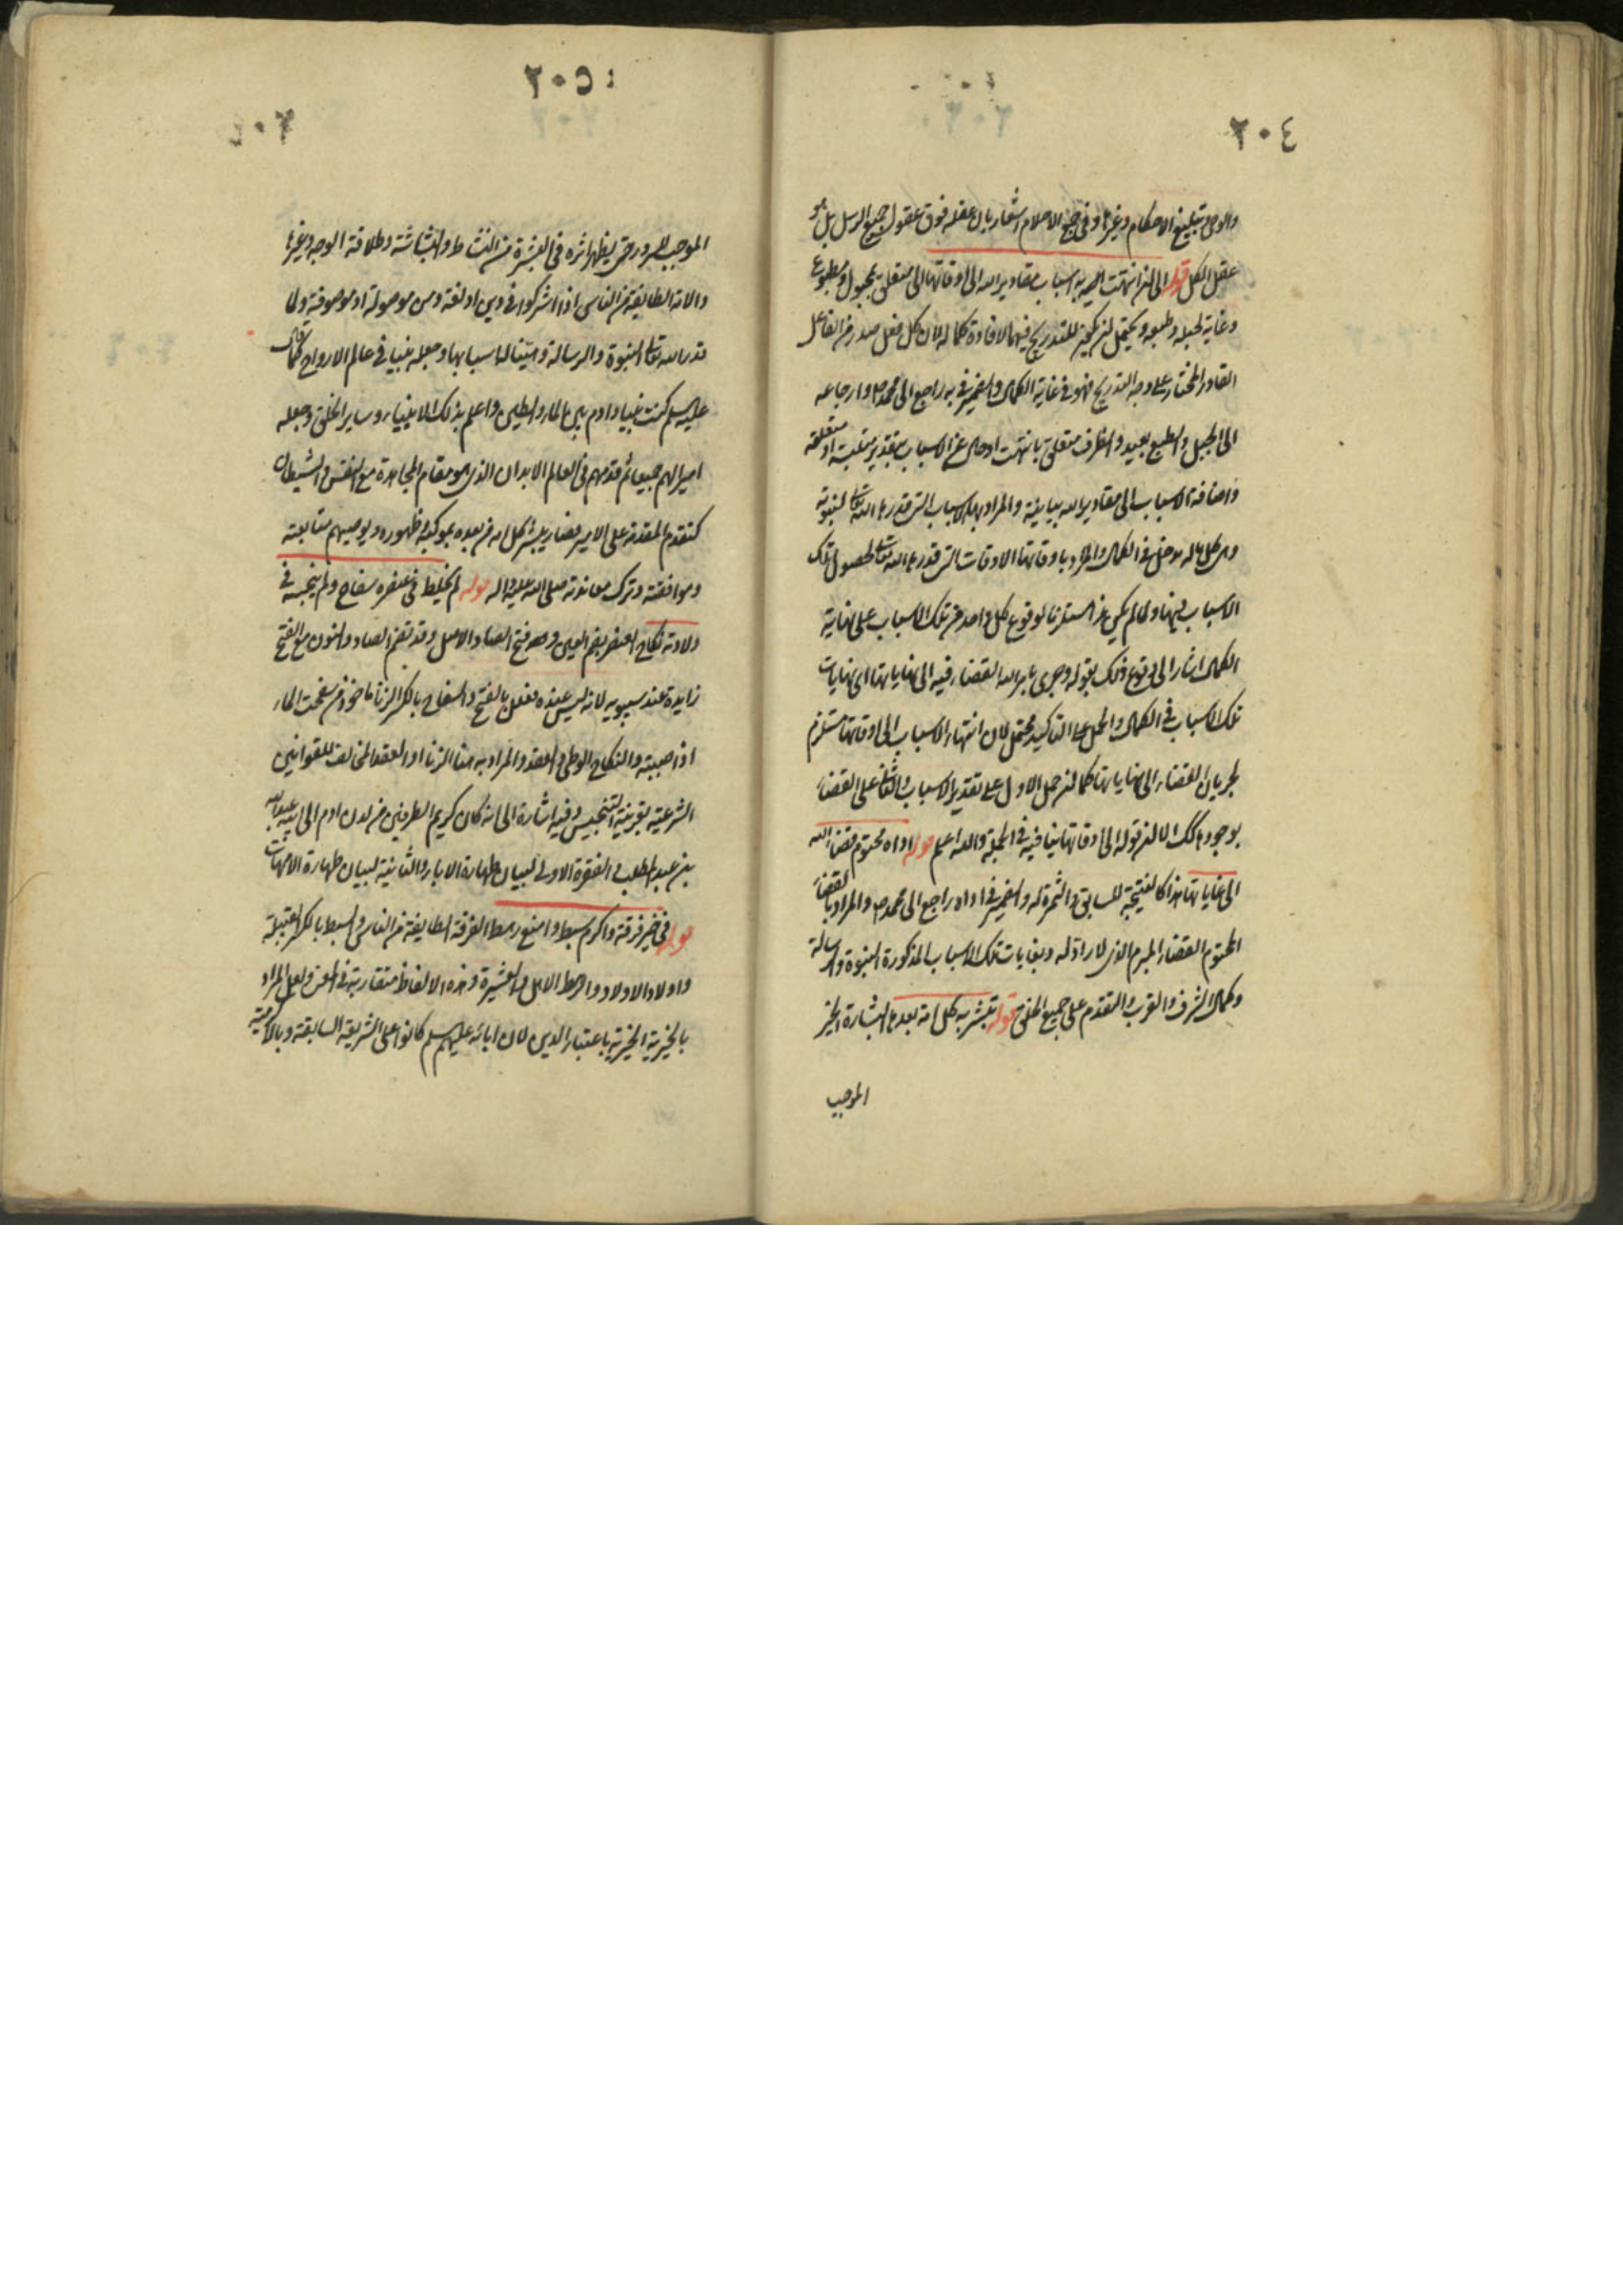 ٢٠٤
والوحى وتبليغ الاحكام وغيرها وفى جمع الاحلام اشعار بان عقله فوق عقول جميع الرسل بل هو
عقل الكل قوله الى ان انتهت به اسباب مقادير الله الى اوقاتها الى متعلق بمجبول ومطبوع
وغاية لجبله وطبعه ويحتمل ان يكون للتدريج فيهما لافادة كماله لان كل فعل صدر من الفاعل
القادر المختار على وجه التدريج فهو فى غاية الكمال والضمير فى به راجع الى محمد ص وارجاعه
الى الجبل والطبع بعيد والظرف متعلق بانتهت او حال عن الاسباب بتقدير متلبسة او متعلقة
واضافة الاسباب الى مقادير الله بيانية والمراد بها الاسباب التى قدرها الله تعالى لنبوته
وكل ماله مدخل فى الكمال والمراد باوقاتها الاوقات التى قدرها الله تعالى لحصول تلك
الاسباب فيها ولما لم يكن هذا مستلزما لوقوع كل واحد من تلك الاسباب على نهاية
الكمال اشار الى وقوع ذلك بقوله وجرى بامر الله القضاء فيه الى نهاياتها اى نهايات
تلك الاسباب فى الكمال والحمل على التاكيد محتمل لان انتهاء الاسباب الى اوقاتها مستلزم
لجريان القضاء الى نهاياتها كما ان حمل الاول على تقدير الاسباب والثانى على القضاء
بوجودها كذلك الا ان قوله الى اوقاتها ينافيه فى الجملة والله اعلم قوله اداه محتوم قضاء الله
الى غاياتها هذا كالنتيجة للسابق والثمرة له والضمير فى اداه راجع الى محمد ص والمراد بالقضاء
المحتوم القضاء المبرم الذى لا راد له وبغايات تلك الاسباب المذكورة النبوة والرسالة
وكمال الشرف والقرب والتقدم على جميع الخلق قوله تبشر به كل امة من بعدها البشارة الخبر
الموجب
٢٠٥
الموجب للسرور حتى يظهر اثره فى البشرة من النشاط والبشاشة وطلاقة الوجه وغيرها
والامة الطايفة من الناس اذا اشتركوا فى دين او لغة ومن موصولة او موصوفة ولما
قدر الله تعالى له النبوة والرسالة وهيئنا له اسبابها وجعله نبيا فى عالم الارواح كما قال
عليه السلم كنت نبيا وادم بين الماء والطين واعلم بذلك الانبياء وساير الخلق وجعله
اميرا لهم جميعا ثم قدمهم فى العالم الابدان الذى هو مقام المجاهدة مع النفس والشيطان
كتقدم المقدمة على الامير فصار يبشر كل امة من بعده بموكبه وظهوره ويوصيهم متابعته
وموافقته وترك معاندته صلى الله عليه واله قوله لم يخلط فى عنصره سفاح ولم ينجسه فى
ولادته نكاح العنصر بضم العين وهو فتح الصاد الاصل وقد تضم الصاد والنون مع الفتح
زايدة عند سيبويه لانه ليس عنده فعلل بالفتح والسفاح بالكسر الزنا ماخوذ من سفحت الماء
اذا صببته والنكاح الوطى والعقد والمراد به هنا الزنا او العقد المخالف للقوانين
الشرعية بقرينة التنجيس وفيه اشارة الى انه كان كريم الطرفين من لدن ادم الى ابيه عبد الله
بن عبد المطلب والفقرة الاولى لبيان طهارة الاباء والثانية لبيان طهارة الامهات
قوله فى خير فرقة واكرم سبط وامنع رهط الفرقة الطايفة من الناس والسبط بالكسر القبيلة
واولاد الاولاد والرهط الاهل والعشيرة وهذه الالفاظ متقاربة فى المعنى ولعل المراد
بالخيرية الخيرية باعتبار الدين لان ابائه عليهم السلم كانوا على الشريعة السابقة وبالاكرمية